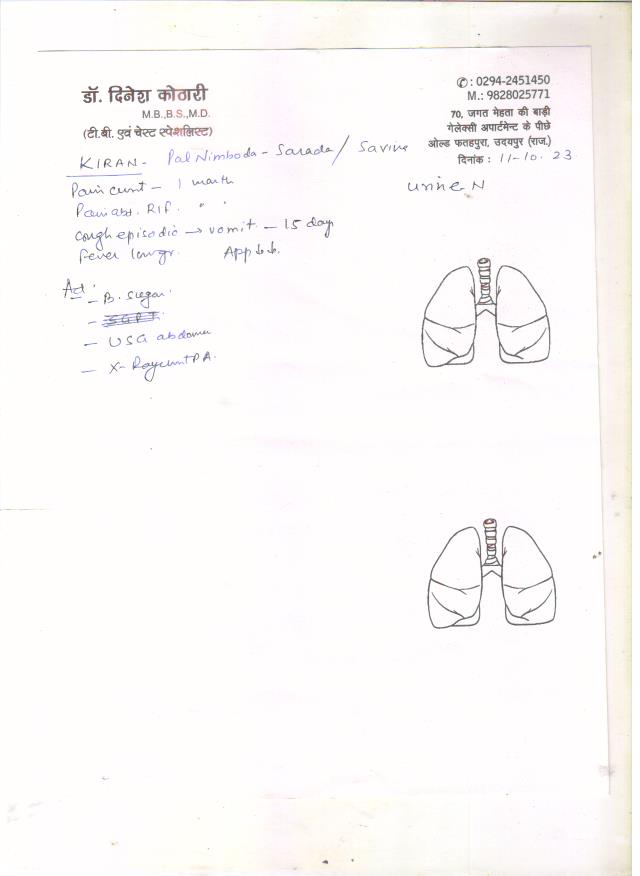 डॉ. दिनेश कोठारी
M.B.,B.S.,M.D.
(टी.बी. एवं चेस्ट स्पेशलिस्ट)
✆: 0294-2451450
M.: 9828025771
70, जगत मेहता की बाड़ी
गेलेक्सी अपार्टमेन्ट के पीछे
ओल्ड फतहपुरा, उदयपुर (राज.)
दिनांक : 11-10. 23
KIRAN - Pal Nimboda - Sarada / Savina
Urine N
Pain - 1 month
Pain abd. RIF. " "
Cough episodic → vomit. - 15 day
Fever low gr. App ↓↓.
Ad.
- B. Sugar.
- SGPT.
- USG abdomen
- X-Ray PA.